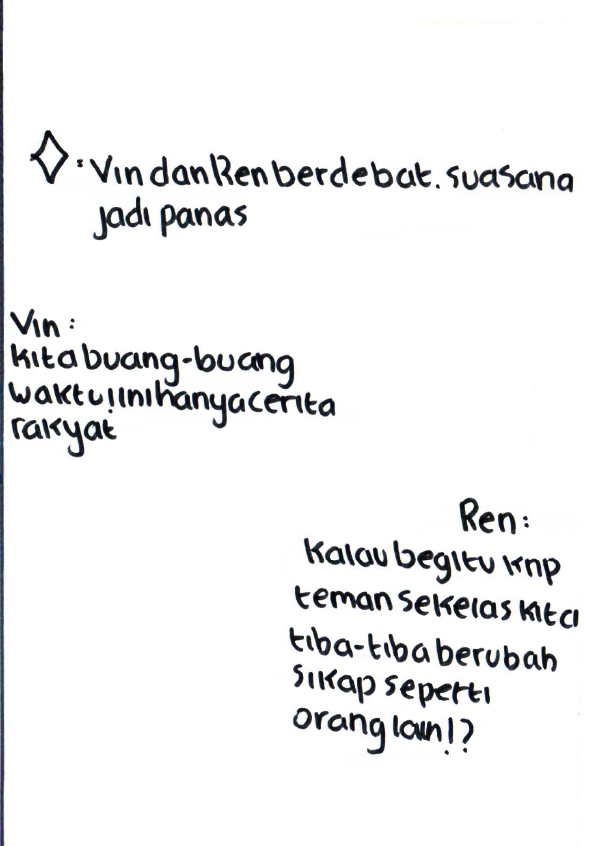 ◇: Vin dan Ren berdebat. suasana
jadi panas
Vin :
kita buang-buang
waktu! ini hanya cerita
rakyat
Ren :
kalau begitu knp
teman sekelas kita
tiba-tiba berubah
sikap seperti
orang lain!?